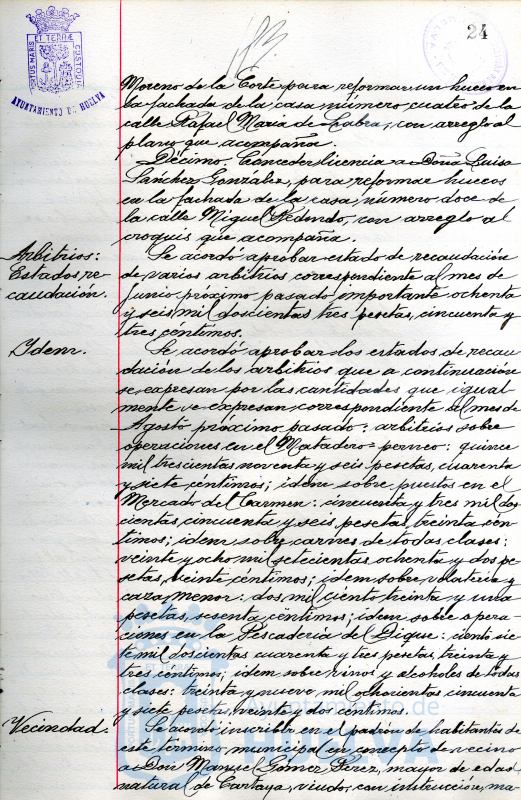 24
AYUNTAMIENTO DE HUELVA
Moreno de la Corte para reformar un hueco en
la fachada de la casa número cuatro de la
calle Rafael María de Labra, con arreglo al
plano que acompaña.
Décimo. Conceder licencia a Doña Luisa
Sánchez González, para reformar huecos
en la fachada de la casa, número doce de
la calle Miguel Redondo, con arreglo al
croquis que acompaña.
Arbitrios:
Estados, re-
caudación.
Se acordó aprobar estado de recaudación
de varios arbitrios correspondiente al mes de
Junio próximo pasado importante ochenta
y seis mil doscientas tres pesetas, cincuenta y
tres céntimos.
Idem.
Se acordó aprobar los estados de recau
dación de los arbitrios que a continuación
se expresan por las cantidades que igual
mente se expresan, correspondiente al mes de
Agosto próximo pasado: arbitrios sobre
operaciones en el Matadero = perneo: quince
mil trescientas noventa y seis pesetas, cuarenta
y siete céntimos; idem sobre puestos en el
Mercado del Carmen: cincuenta y tres mil dos
cientas, cincuenta y seis pesetas, treinta cén
timos; idem sobre carnes de todas clases:
veinte y ocho mil setecientas ochenta y dos pe
setas, veinte céntimos; idem sobre volatería y
caza menor: dos mil ciento treinta y una
pesetas, sesenta céntimos; idem sobre opera
ciones en la Pescadería del Dique: ciento sie
te mil doscientas cuarenta y tres pesetas, treinta y
tres céntimos; idem sobre vinos y alcoholes de todas
clases: treinta y nueve mil ochocientas cincuenta
y siete pesetas, veinte y dos céntimos.
Vecindad.
Se acordó inscribir en el padrón de habitantes de
este término municipal en concepto de vecino
a Don Manuel Gómez Pérez, mayor de edad
natural de Cartaya, viudo, con instrucción, ma-
Ayuntamiento de
HUELVA